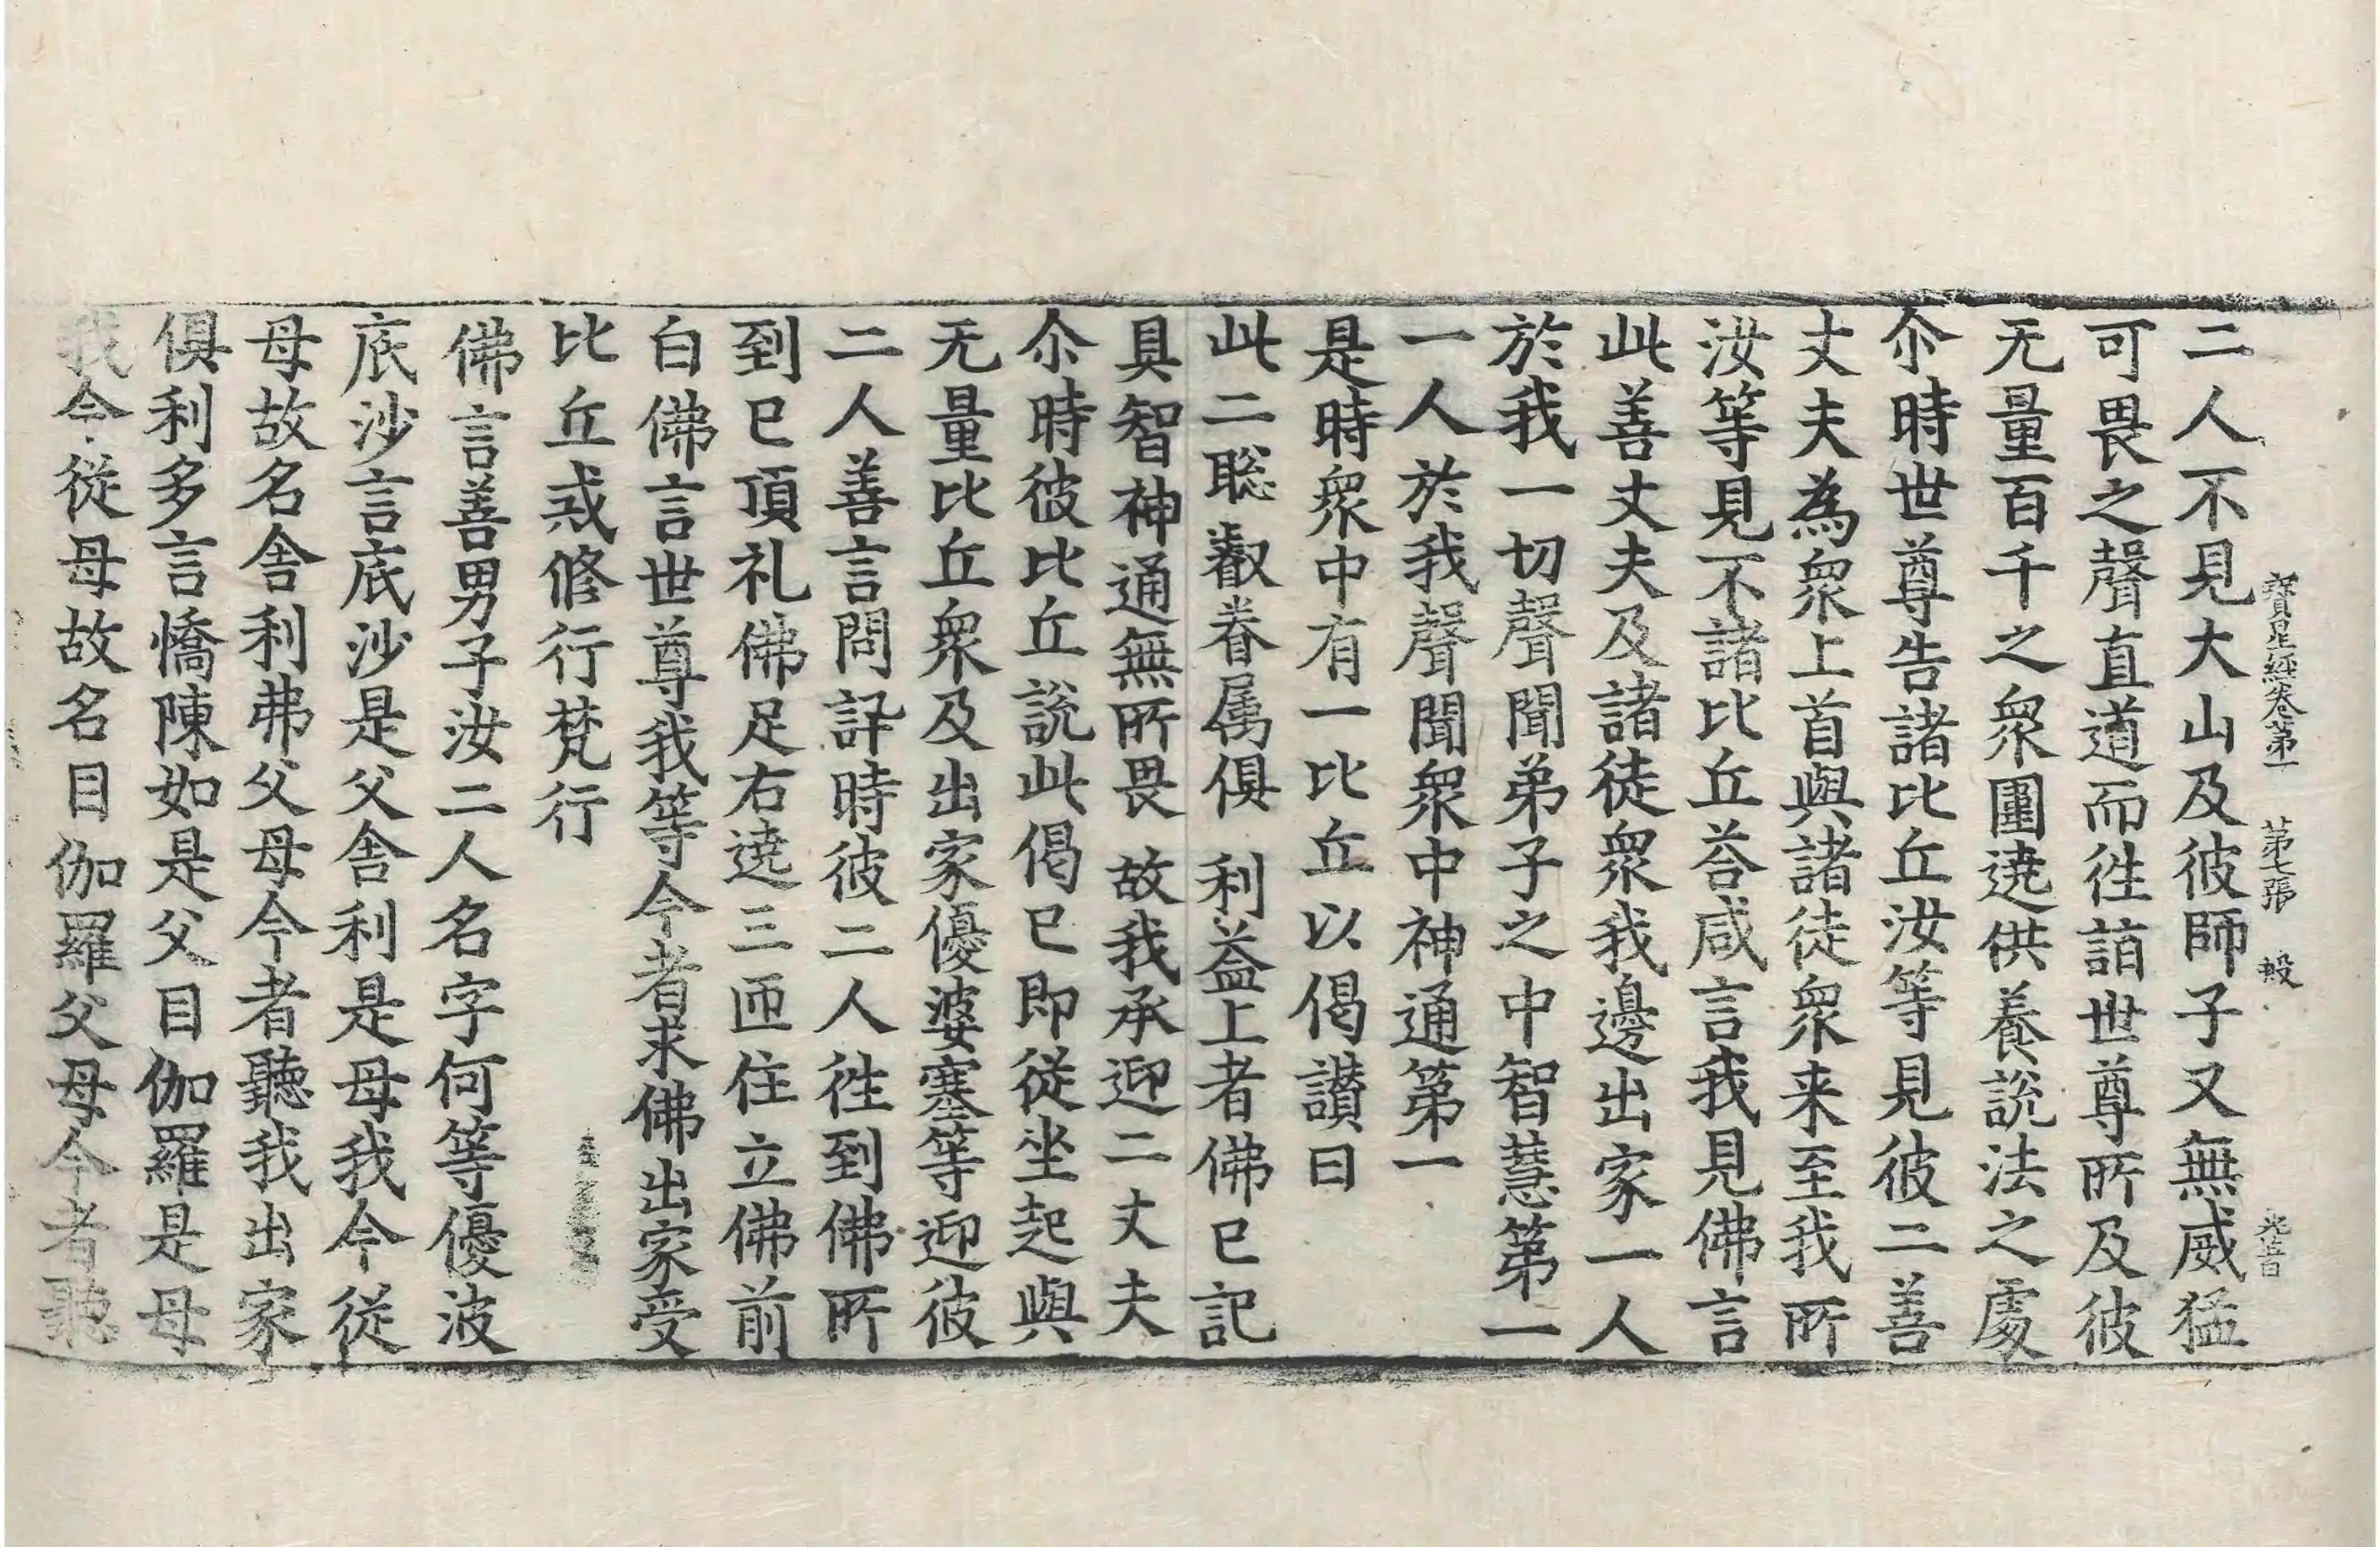 寶星經卷第一　第七張　毀　光昔
二人不見大山及彼師子又無威猛
可畏之聲直道而徃詣世尊所及彼
无量百千之衆圍遶供養說法之處
尒時世尊告諸比丘汝等見彼二善
丈夫為衆上首與諸徒衆来至我所
汝等見不諸比丘荅咸言我見佛言
此善丈夫及諸徒衆我邊出家一人
於我一切聲聞弟子之中智慧第一
一人於我聲聞衆中神通第一
是時衆中有一比丘以偈讃曰
此二聡叡眷属俱　利益上者佛已記
具智神通無所畏　故我承迎二丈夫
尒時彼比丘說此偈已即從坐起與
无量比丘衆及出家優婆塞等迎彼
二人善言問訊時彼二人徃到佛所
到已頂礼佛足右遶三匝住立佛前
白佛言世尊我等今者求佛出家受
比丘戒修行梵行
佛言善男子汝二人名字何等優波
底沙言底沙是父舍利是母我今從
母故名舍利弗父母今者聽我出家
俱利多言憍陳如是父目伽羅是母
我今從母故名目伽羅父母今者聽